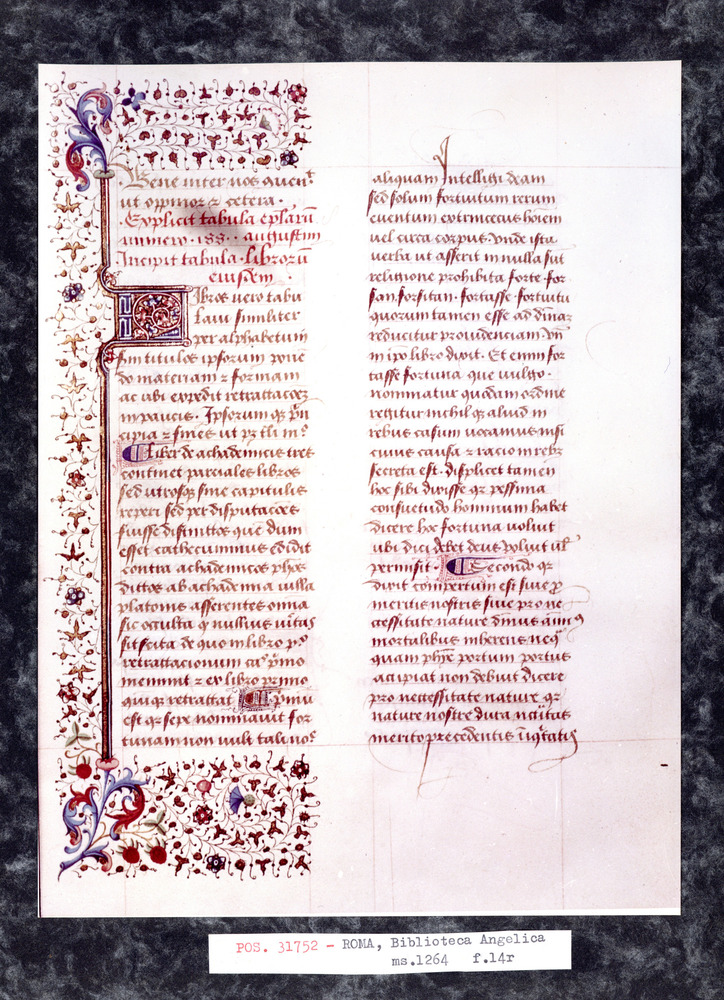 Bene inter nos queñᵗ
ut oppinor ⁊ cetera.
Explicit tabula ep̃larũ
numero · 188 · augustini
Incipit tabula · librorũ
eiusdem ·
Ibros uero tabu
laui similiter
per alphabetum
sm̃ titulos ipsorum pone
do materiam ⁊ formam
ac ubi expedit retrattac̃oẽz
in paucis. Ipsorum qꝫ p̃n
cipia ⁊ fines ut pꝫ
Liber de achademicis tres
continet parciales libros
sed utrosqꝫ sine capitulis
reperi sed per disputac̃oẽs
fuisse distinttos quẽ dum
esset cathecuminus edidit
contra achademicos ph̃os
dittos ab achademia uilla
platonis asserentes om̃ia
sic occulta ꝙ nullius uẽitas
sit scita de quo in libro p.º
retrattacionum caº p̃imo
meminit ⁊ ex libro primo
quinqꝫ retrattat p̃imũ
est qꝫ sepe nominauit for
tunam non uult tali noẽ
aliquam Intelligi deam
sed solum fortuitum rerum
euentum extrinsecus hoiem
uel circa corpus. Vnde ista
uerba ut asserit in nulla sut
religione prohibita forte · for
san. forsitan · fortasse · fortuitu
quorum tamen esse ad diuinaz
reducitur prouidenciam. Vñ
in ipo libro dixit. Et enim for
tasse fortuna que uulgo ·
nominatur quodam ordine
regitur nichil qꝫ aliud in
rebus casum uocamus nisi
cuius causa ⁊ racio in rebꝫ
secreta est. displicet tamen
hoc sibi dixisse qꝫ pessima
consuetudo hominum habet
dicere hoc fortuna uoluit
ubi dici debet deus uoluit ul̃
permisit · Secondo qꝫ
dixit compertum est siue ꝓ
meritis nostris siue pro ne
cessitate nature diuinus animꝰ
mortalibus inherens neqꝫ
quam phỹe portum portus
accipiat non debuit dicere
pro necessitate nature qꝫ
nature nostre dura nc̃citas
merito precedentis iniq̃tatis
POS. 31752 - ROMA, Biblioteca Angelica
ms.1264 f.14r